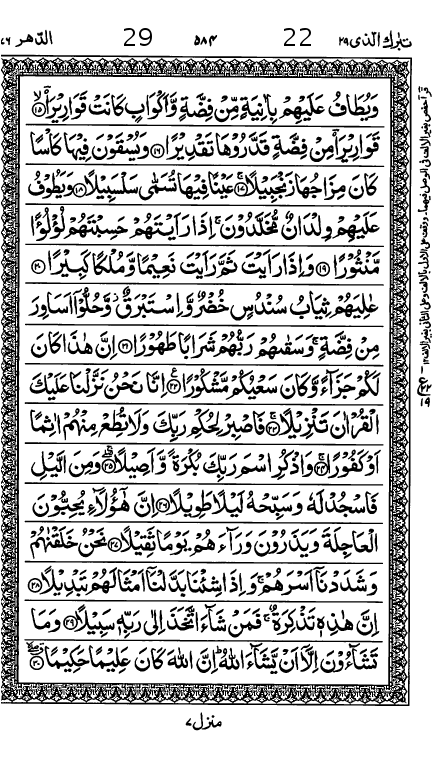 تبارك الذی ٢٩ 22 ٥٨٤ 29 الدّهر ٧٦
وَيُطَافُ عَلَيْهِمْ بِاٰنِيَةٍ مِّنْ فِضَّةٍ وَّاَكْوَابٍ كَانَتْ قَوَارِيْرَا۠ ﴿١٥﴾
قَوَارِيْرَا۠ مِنْ فِضَّةٍ قَدَّرُوْهَا تَقْدِيْرًا ﴿١٦﴾ وَيُسْقَوْنَ فِيْهَا كَاْسًا
كَانَ مِزَاجُهَا زَنْجَبِيْلًا ﴿١٧﴾ عَيْنًا فِيْهَا تُسَمّٰى سَلْسَبِيْلًا ﴿١٨﴾ وَيَطُوْفُ
عَلَيْهِمْ وِلْدَانٌ مُّخَلَّدُوْنَ ۚ اِذَا رَاَيْتَهُمْ حَسِبْتَهُمْ لُؤْلُؤًا
مَّنْثُوْرًا ﴿١٩﴾ وَاِذَا رَاَيْتَ ثَمَّ رَاَيْتَ نَعِيْمًا وَّمُلْكًا كَبِيْرًا ﴿٢٠﴾
عٰلِيَهُمْ ثِيَابُ سُنْدُسٍ خُضْرٌ وَّاِسْتَبْرَقٌ ۖ وَّحُلُّوْٓا اَسَاوِرَ
مِنْ فِضَّةٍ ۚ وَسَقٰىهُمْ رَبُّهُمْ شَرَابًا طَهُوْرًا ﴿٢١﴾ اِنَّ هٰذَا كَانَ
لَكُمْ جَزَآءً وَّكَانَ سَعْيُكُمْ مَّشْكُوْرًا ﴿٢٢﴾ اِنَّا نَحْنُ نَزَّلْنَا عَلَيْكَ
الْقُرْاٰنَ تَنْزِيْلًا ﴿٢٣﴾ فَاصْبِرْ لِحُكْمِ رَبِّكَ وَلَا تُطِعْ مِنْهُمْ اٰثِمًا
اَوْ كَفُوْرًا ﴿٢٤﴾ وَاذْكُرِ اسْمَ رَبِّكَ بُكْرَةً وَّاَصِيْلًا ﴿٢٥﴾ وَمِنَ الَّيْلِ
فَاسْجُدْ لَهٗ وَسَبِّحْهُ لَيْلًا طَوِيْلًا ﴿٢٦﴾ اِنَّ هٰٓؤُلَآءِ يُحِبُّوْنَ
الْعَاجِلَةَ وَيَذَرُوْنَ وَرَآءَهُمْ يَوْمًا ثَقِيْلًا ﴿٢٧﴾ نَحْنُ خَلَقْنٰهُمْ
وَشَدَدْنَآ اَسْرَهُمْ ۚ وَاِذَا شِئْنَا بَدَّلْنَآ اَمْثَالَهُمْ تَبْدِيْلًا ﴿٢٨﴾
اِنَّ هٰذِهٖ تَذْكِرَةٌ ۚ فَمَنْ شَآءَ اتَّخَذَ اِلٰى رَبِّهٖ سَبِيْلًا ﴿٢٩﴾ وَمَا
تَشَآءُوْنَ اِلَّآ اَنْ يَّشَآءَ اللّٰهُ ؕ اِنَّ اللّٰهَ كَانَ عَلِيْمًا حَكِيْمًا ﴿٣٠﴾
منزل ٧